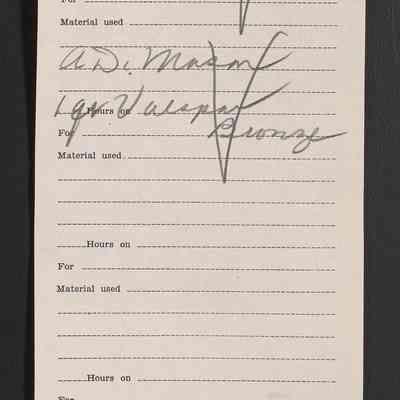 For
Material used
A. D. Mason
1 qr Valspar
Hours on
For Bronze
Material used
Hours on
For
Material used
Hours on
For